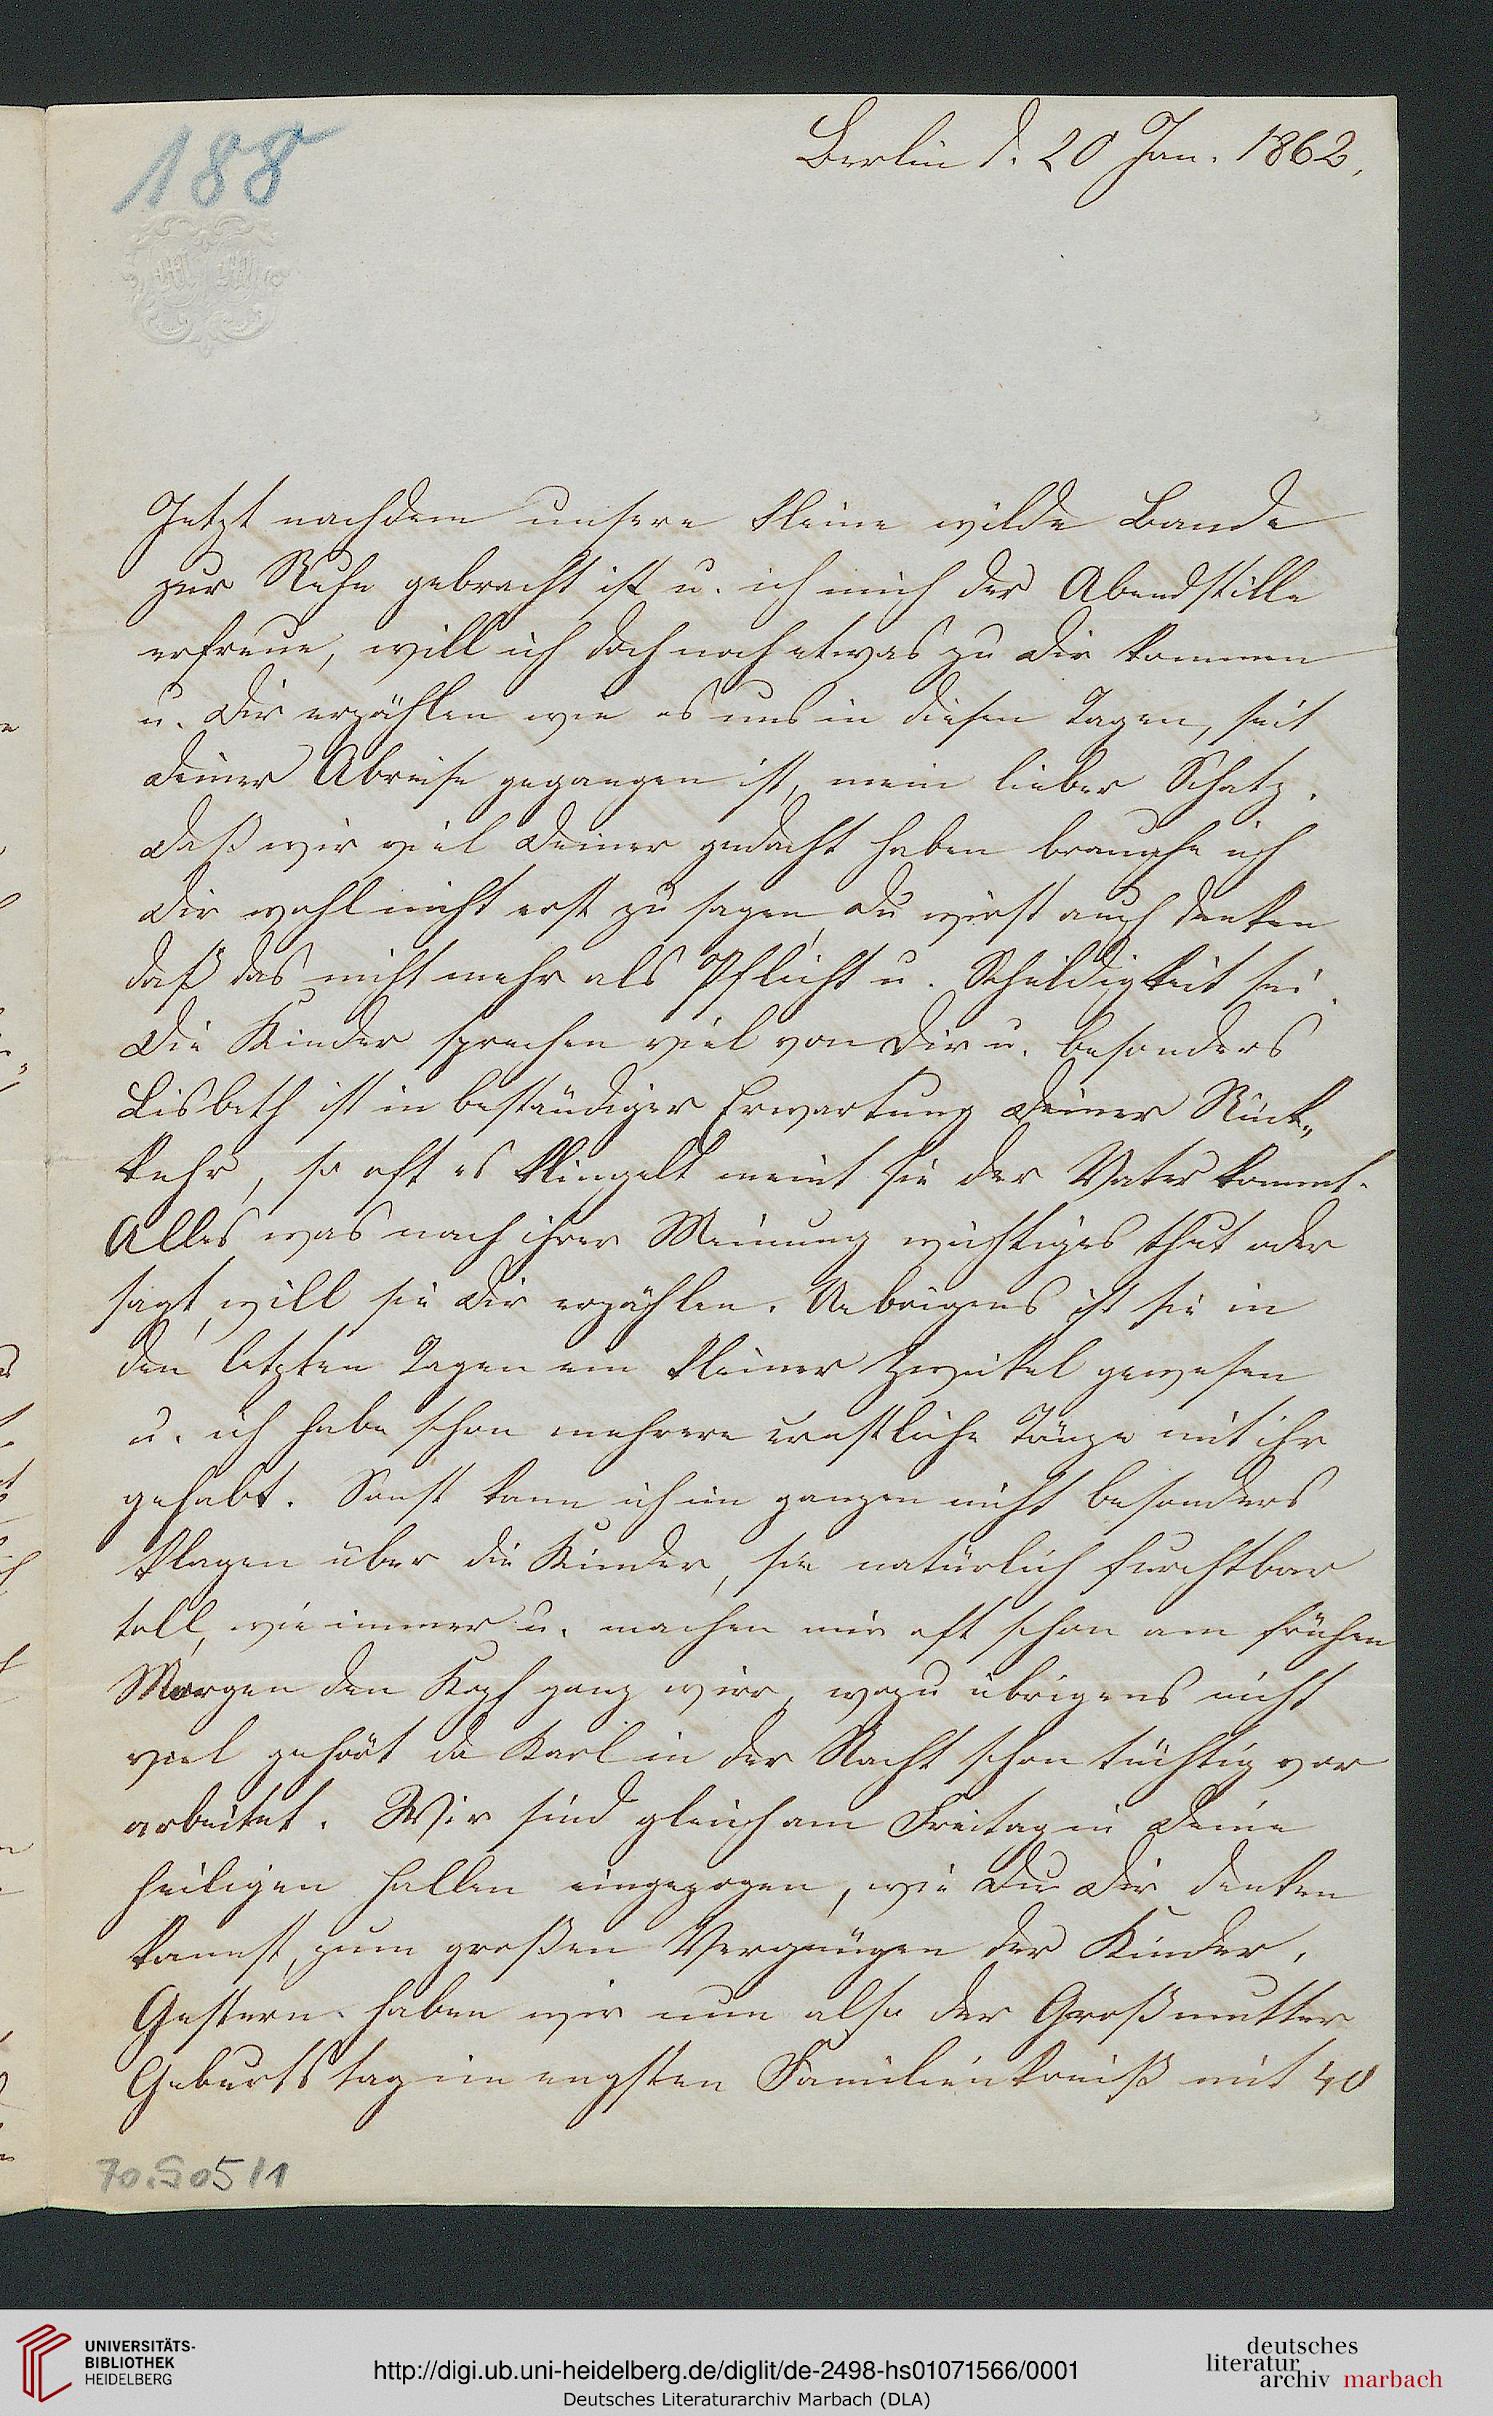 188
Berlin d. 20 Jan. 1862.
Jetzt nachdem unsere kleine wilde Bande
zur Ruhe gebracht ist u. ich mich der Abendstille
erfreue, will ich doch noch etwas zu Dir kommen
u. Dir erzählen wie es uns in diesen Tagen, seit
Deiner Abreise gegangen ist, mein lieber Schatz.
Daß wir viel Deiner gedacht haben brauche ich
Dir wohl nicht erst zu sagen, Du wirst auch denken
daß das nicht mehr als Pflicht u. Schuldigkeit sei.
Die Kinder sprechen viel von Dir u. besonders
Lisbeth ist in beständiger Erwartung Deiner Rück„
kehr, so oft es klingelt meint sie der Vater kommt.
Alles was nach ihrer Meinung wichtiges thut oder
sagt, will sie Dir erzählen. Uebrigens ist sie in
den letzten Tagen ein kleiner gewesen
u. ich habe schon mehrere ernstliche Tänze mit ihr
gehabt. Sonst kann ich im ganzen nicht besonders
klagen über die Kinder, sie natürlich furchtbar
toll, wie immer u. machen mir oft schon am frühen
Morgen den Kopf ganz wirr, wozu übrigens nicht
viel gehört da Karl in der Nacht schon tüchtig vor
arbeitet. Wir sind gleich am Freitag in Deine
heiligen Hallen eingezogen, wie Du Dir denken
kannst, zum großen Vergnügen der Kinder.
Gestern haben wir nun also der Großmutter
Geburtstag im engsten Familienkreiß mit 40
70.505/1
UNIVERSITÄTS-
BIBLIOTHEK
HEIDELBERG
http://digi.ub.uni-heidelberg.de/diglit/de-2498-hs01071566/0001
Deutsches Literaturarchiv Marbach (DLA)
deutsches
literatur
archiv marbach